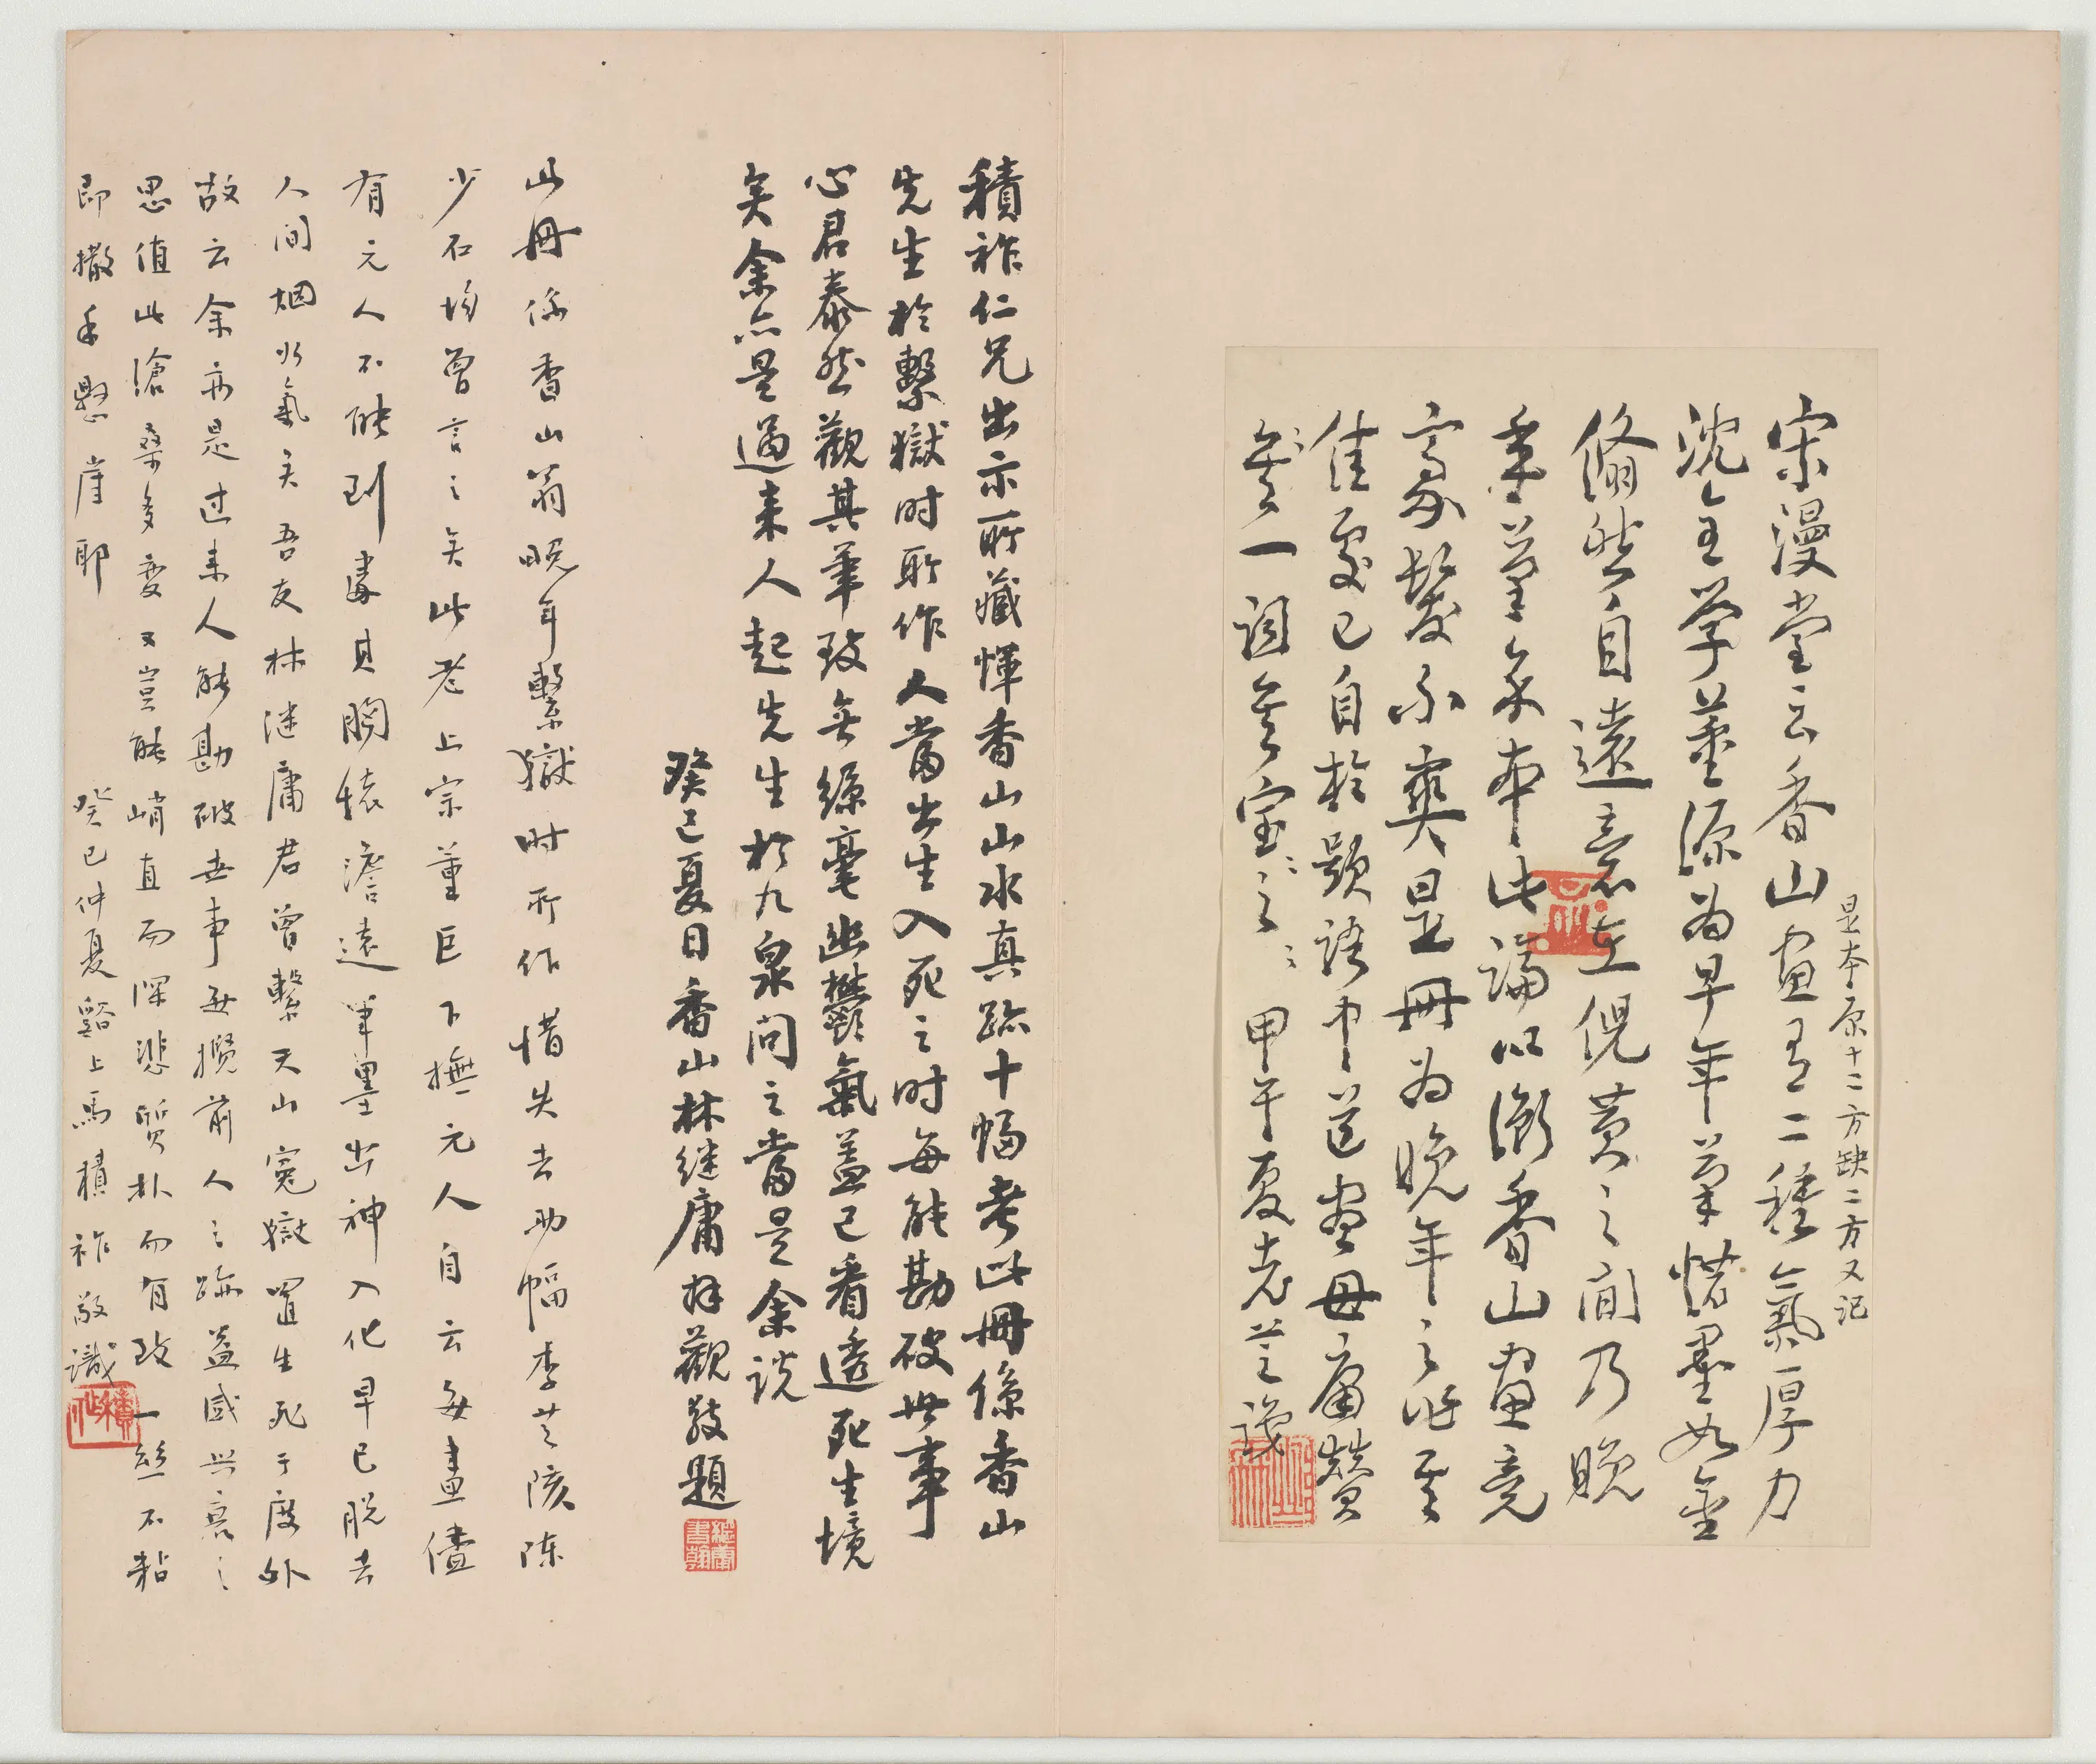 是本原十二方缺二方又記
宋漫堂云香山画有二種氣厚力
沈全学董源为早年筆惜墨如金
翛然自遠意在倪黄之间乃晚
年筆余本此論以衡香山画竟
高鬆不爽是冊为晚年之作至
佳處已自於題語中道盡毋庸贊
一詞宝之甲午夏老芝識
積祚仁兄出示所藏惲香山山水真跡十幅考此冊係香山
先生於繫獄时所作人當出生入死之时每能勘破世事
心君泰然觀其筆致無絲毫幽鬱氣蓋已看透死生境
矣余亦是過来人起先生於九泉问之當是余说
癸巳夏日香山林继庸拜觀敬題
此冊係香山翁晚年繫獄时所作惜失去助幅李芝陔陈
少石均曾言之矣此老上宗董巨下撫元人自云每畫儘
有元人不能到處其胸襟澹遠筆墨出神入化早已脱去
人间烟火氣矣吾友林继庸君曾繫天山冤獄置生死于度外
故云余亦是过来人能勘破世事每攬前人之跡益感興衰之
思值此滄桑多变又豈能峭直而深悲質朴而有致一丝不黏
即撒手懸崖耶
癸巳仲夏谿上馬積祚敬識
積祚
繼庸書翰